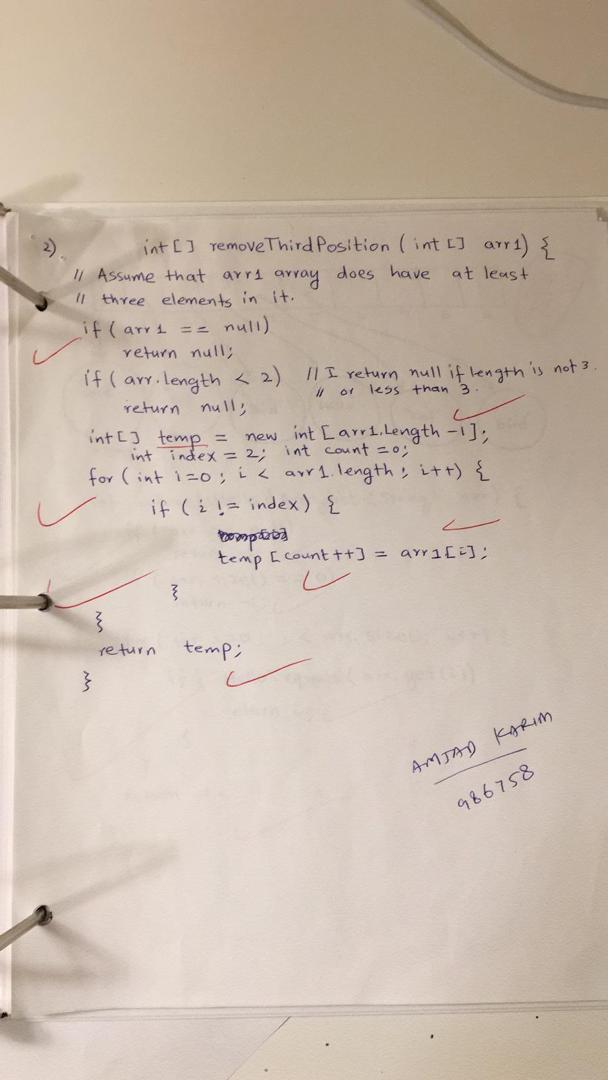 2) int[] removeThirdPosition (int[] arr1) {
// Assume that arr1 array does have at least
// three elements in it.
if (arr1 == null)
return null;
if (arr.length < 2) // I return null if length is not 3
// or less than 3.
return null;
int[] temp = new int[arr1.length -1];
int index = 2; int count = 0;
for (int i=0; i < arr1.length; i++) {
if (i != index) {
temp [count++] = arr1[i];
}
}
return temp;
}
AMJAD KARIM
986758